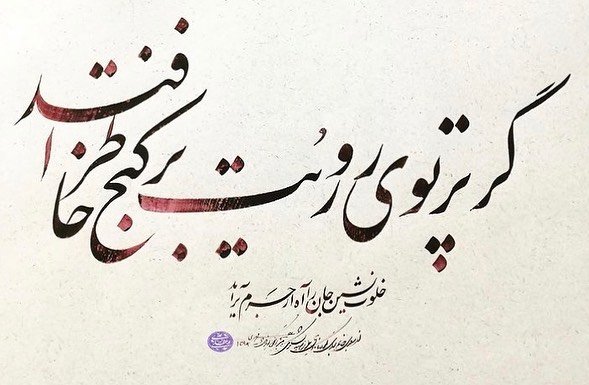 گر پرتوی ز رویت بر کنج خاطر افتد
خلوت نشین جان را آه از حرم برآید